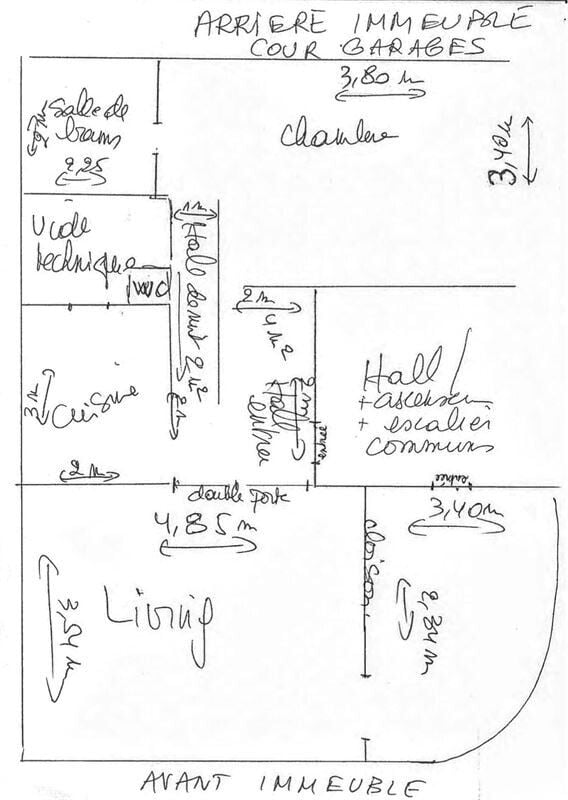 ARRIERE IMMEUBLE
COUR GARAGES
3,80 m
Salle de
bains
2 m
2,25
chambre
3,40 m
Vide
technique
WC
1 m
Hall de nuit 2 m²
2 m
2 m
4 m²
Hall
entrée
2 m
entrée
Hall /
+ ascenseur
+ escalier
communs
3 m
Cuisine
2 m
double porte
entrée
4,85 m
3,40 m
cloison
3,54 m
Living
2,84 m
AVANT IMMEUBLE